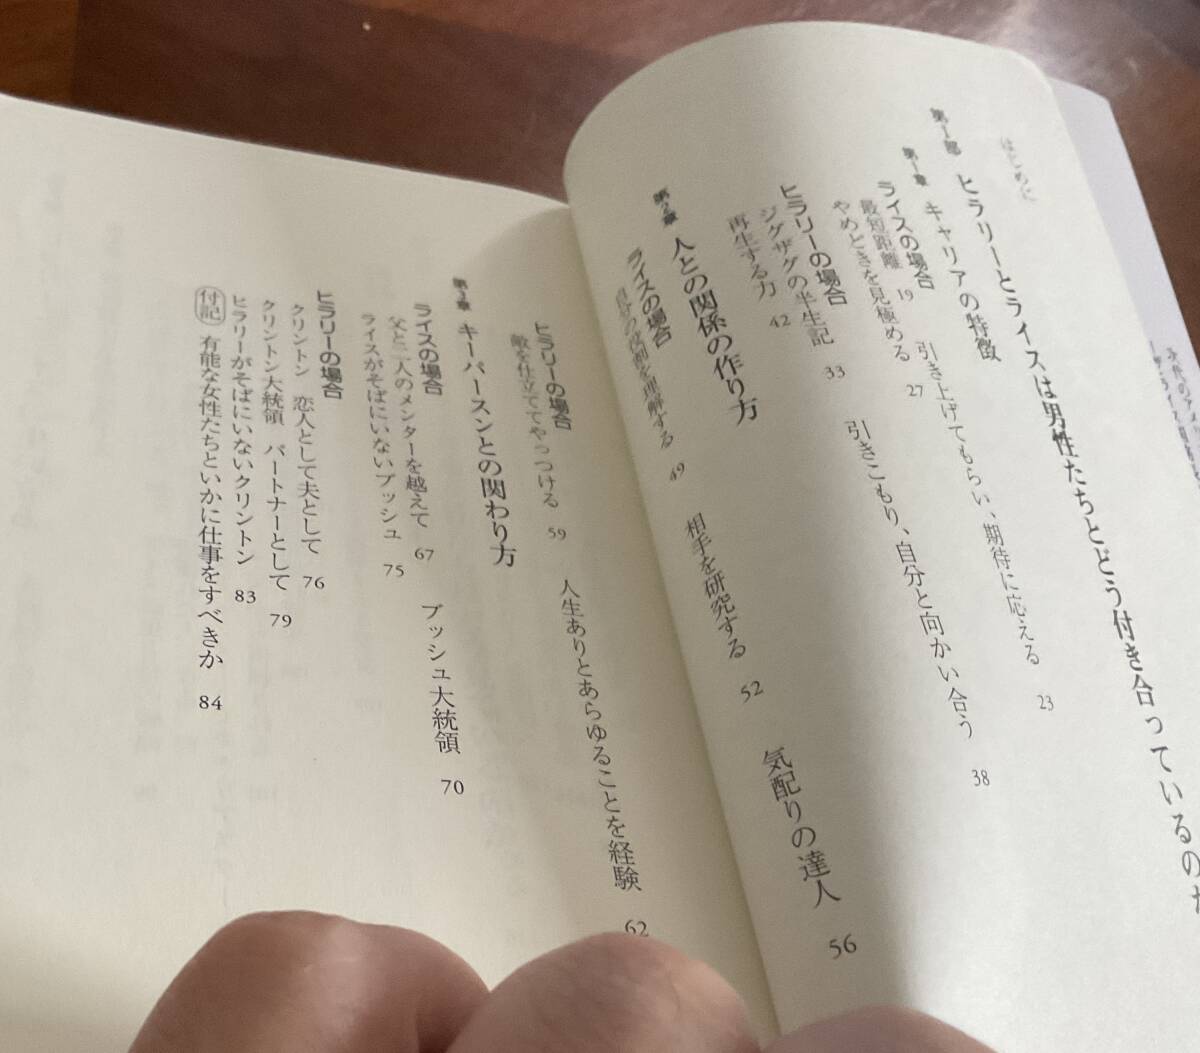 はじめに
第1部 ヒラリーとライスは男性たちとどう付き合っているのか
第1章 キャリアの特徴
ライスの場合
最短距離 19 引き上げてもらい、期待に応える 23
やめどきを見極める 27
ヒラリーの場合
ジグザグの半生記 33 引きこもり、自分と向かい合う 38
再生する力 42
第2章 人との関係の作り方
ライスの場合
自分の役割を理解する 49 相手を研究する 52 気配りの達人 56
ヒラリーの場合
敵を仕立ててやっつける 59 人生ありとあらゆることを経験 62
第3章 キーパースンとの関わり方
ライスの場合
父と二人のメンターを越えて 67 ブッシュ大統領 70
ライスがそばにいないブッシュ 75
ヒラリーの場合
クリントン 恋人として夫として 76
クリントン大統領 パートナーとして 79
ヒラリーがそばにいないクリントン 83
付記 有能な女性たちといかに仕事をすべきか 84